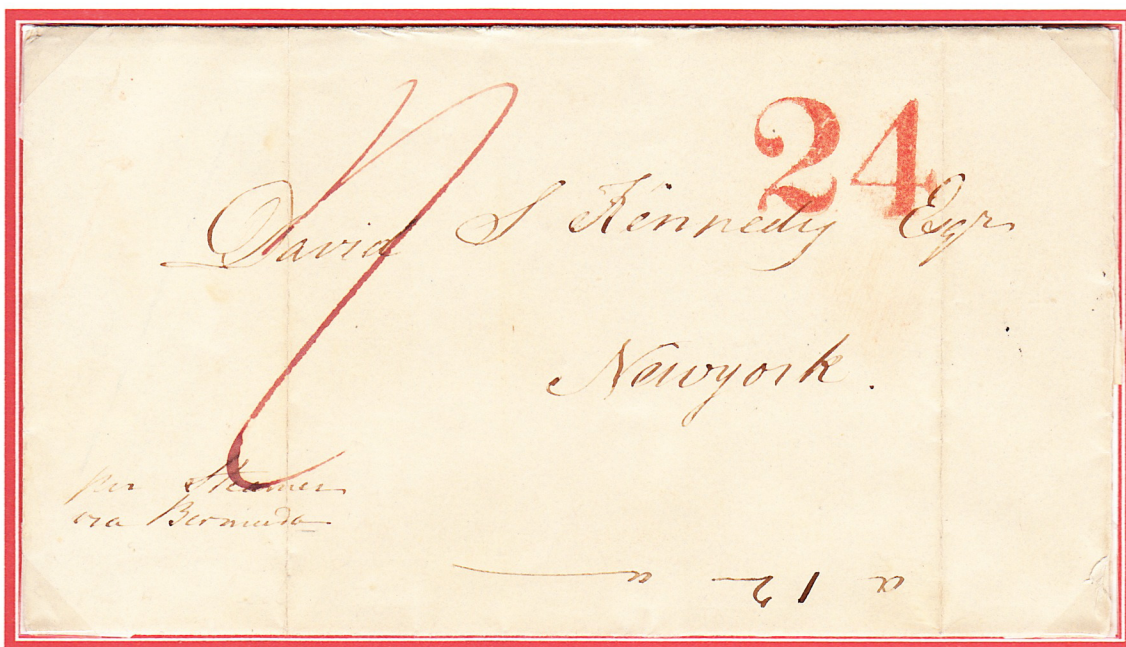 24
David S Kennedy Esqr
Newyork.
per Steamer
via Bermuda